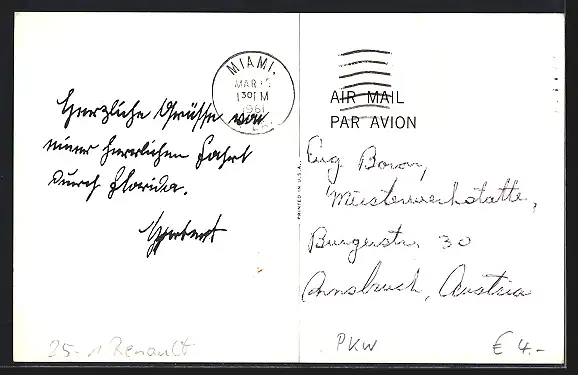 Herzliche Grüsse von
einer herrlichen Fahrt
durch Florida.
Herbert
MIAMI,
MAR
1 30 PM
1961
AIR MAIL
PAR AVION
PRINTED IN U.S.A.
Eug
Meisterwerkstatte,
Burgerstr. 30
Innsbruck, Austria
25.- Renault
PKW
€ 4.-